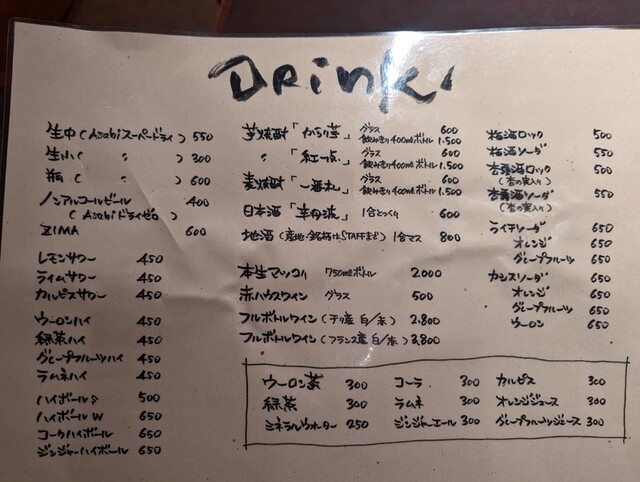 Drink
生中(Asahiスーパードライ) 550
生小( 〃 ) 300
瓶( 〃 ) 600
ノンアルコールビール 400
(Asahiドライゼロ)
ZIMA 600
レモンサワー 450
ライムサワー 450
カルピスサワー 450
ウーロンハイ 450
緑茶ハイ 450
グレープフルーツハイ 450
ラムネハイ 450
ハイボール 500
ハイボールW 650
コークハイボール 650
ジンジャーハイボール 650
芋焼酎「からり芋」 グラス 600
飲みきり400mlボトル 1,500
〃 「紅一点」 グラス 600
飲みきり400mlボトル 1,500
麦焼酎「一番札」 グラス 600
飲みきり400mlボトル 1,500
日本酒「 」 1合とっくり 600
地酒(産地・銘柄はSTAFFまで) 1合マス 800
本生マッコリ 750mlボトル 2,000
赤ハウスワイン グラス 500
フルボトルワイン(チリ産 白/赤) 2,800
フルボトルワイン(フランス産 白/赤) 3,800
梅酒ロック 500
梅酒ソーダ 550
杏露酒ロック 500
(杏の実入り)
杏露酒ソーダ 550
(杏の実入り)
ライチソーダ 650
オレンジ 650
グレープフルーツ 650
カシスソーダ 650
オレンジ 650
グレープフルーツ 650
ウーロン 650
ウーロン茶 300 コーラ 300 カルピス 300
緑茶 300 ラムネ 300 オレンジジュース 300
ミネラルウォーター 250 ジンジャーエール 300 グレープフルーツジュース 300